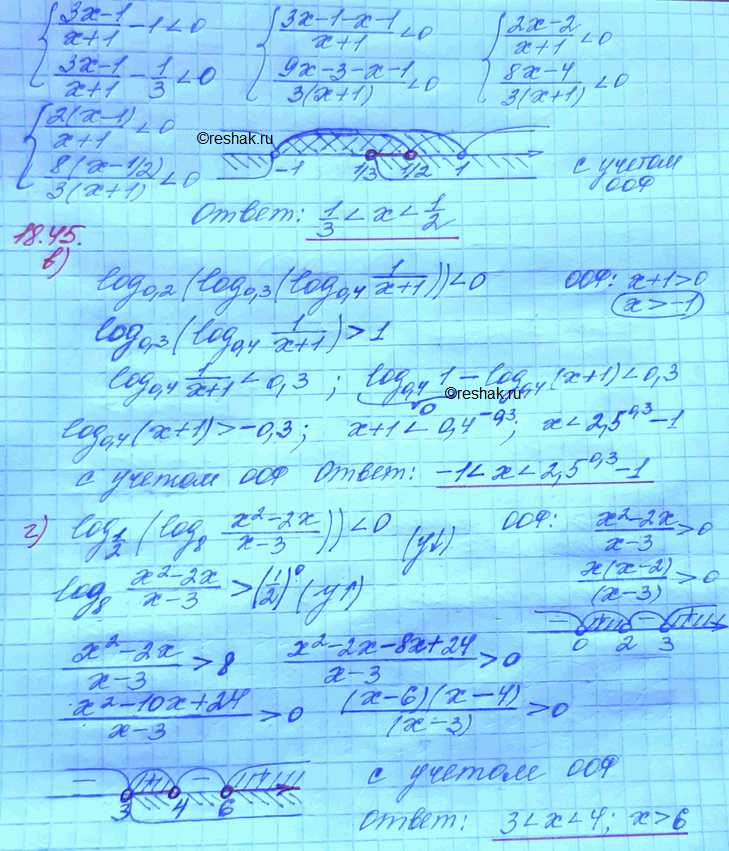 { (3x-1)/(x+1) - 1 < 0   { (3x-1-x-1)/(x+1) < 0   { (2x-2)/(x+1) < 0
{ (3x-1)/(x+1) - 1/3 < 0   { (9x-3-x-1)/(3(x+1)) < 0   { (8x-4)/(3(x+1)) < 0
{ 2(x-1)/(x+1) < 0
©reshak.ru
{ 8(x-1/2)/(3(x+1)) < 0
-1 1/3 1/2 1
с учетом
ООФ
Ответ: 1/3 < x < 1/2
18.45.
в)
log₀,₂(log₀,₃(log₀,₄ 1/(x+1))) < 0   ООФ: x+1>0
(x>-1)
log₀,₃(log₀,₄ 1/(x+1)) > 1
log₀,₄ 1/(x+1) < 0,3 ; log₀,₄ 1 - log₀,₄(x+1) < 0,3
0
©reshak.ru
log₀,₄(x+1) > -0,3; x+1 < 0,4^(-0,3); x < 2,5^(0,3) - 1
с учетом ООФ Ответ: -1 < x < 2,5^(0,3) - 1
г) log_(1/2)(log₈ (x²-2x)/(x-3))) < 0 (y↓)   ООФ: (x²-2x)/(x-3) > 0
log₈ (x²-2x)/(x-3) > (1/2)⁰ (y↑)   x(x-2)/(x-3) > 0
- + - +
0 2 3
(x²-2x)/(x-3) > 8   (x²-2x-8x+24)/(x-3) > 0
(x²-10x+24)/(x-3) > 0   (x-6)(x-4)/(x-3) > 0
- + - +
3 4 6
с учетом ООФ
Ответ: 3 < x < 4; x > 6